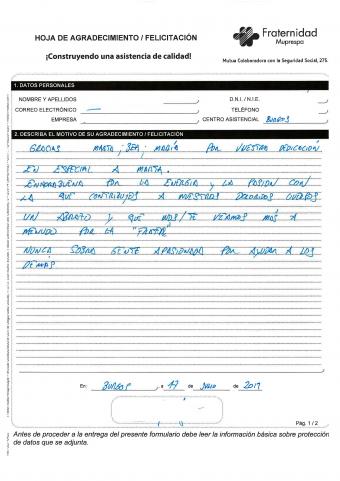 HOJA DE AGRADECIMIENTO / FELICITACIÓN
Fraternidad
Muprespa
¡Construyendo una asistencia de calidad!
Mutua Colaboradora con la Seguridad Social, 275.
1. DATOS PERSONALES
NOMBRE Y APELLIDOS D.N.I. / N.I.E.
CORREO ELECTRÓNICO TELÉFONO
EMPRESA CENTRO ASISTENCIAL BURGOS
2. DESCRIBA EL MOTIVO DE SU AGRADECIMIENTO / FELICITACIÓN
GRACIAS MARTA, BEA, MARÍA POR VUESTRA DEDICACIÓN.
EN ESPECIAL A MARTA.
ENHORABUENA POR LA ENERGÍA Y LA PASIÓN CON
LA QUE CONTRIBUYES A NUESTROS DOLORIDOS CUERPOS
UN ABRAZO Y QUE NOS/TE VEAMOS MÁS A
MENUDO POR LA
NUNCA SOBRA GENTE APASIONADA POR AYUDAR A LOS
DEMÁS
En: BURGOS, a 17 de JULIO de 2017
Pág. 1 / 2
Antes de proceder a la entrega del presente formulario debe leer la información básica sobre protección
de datos que se adjunta.